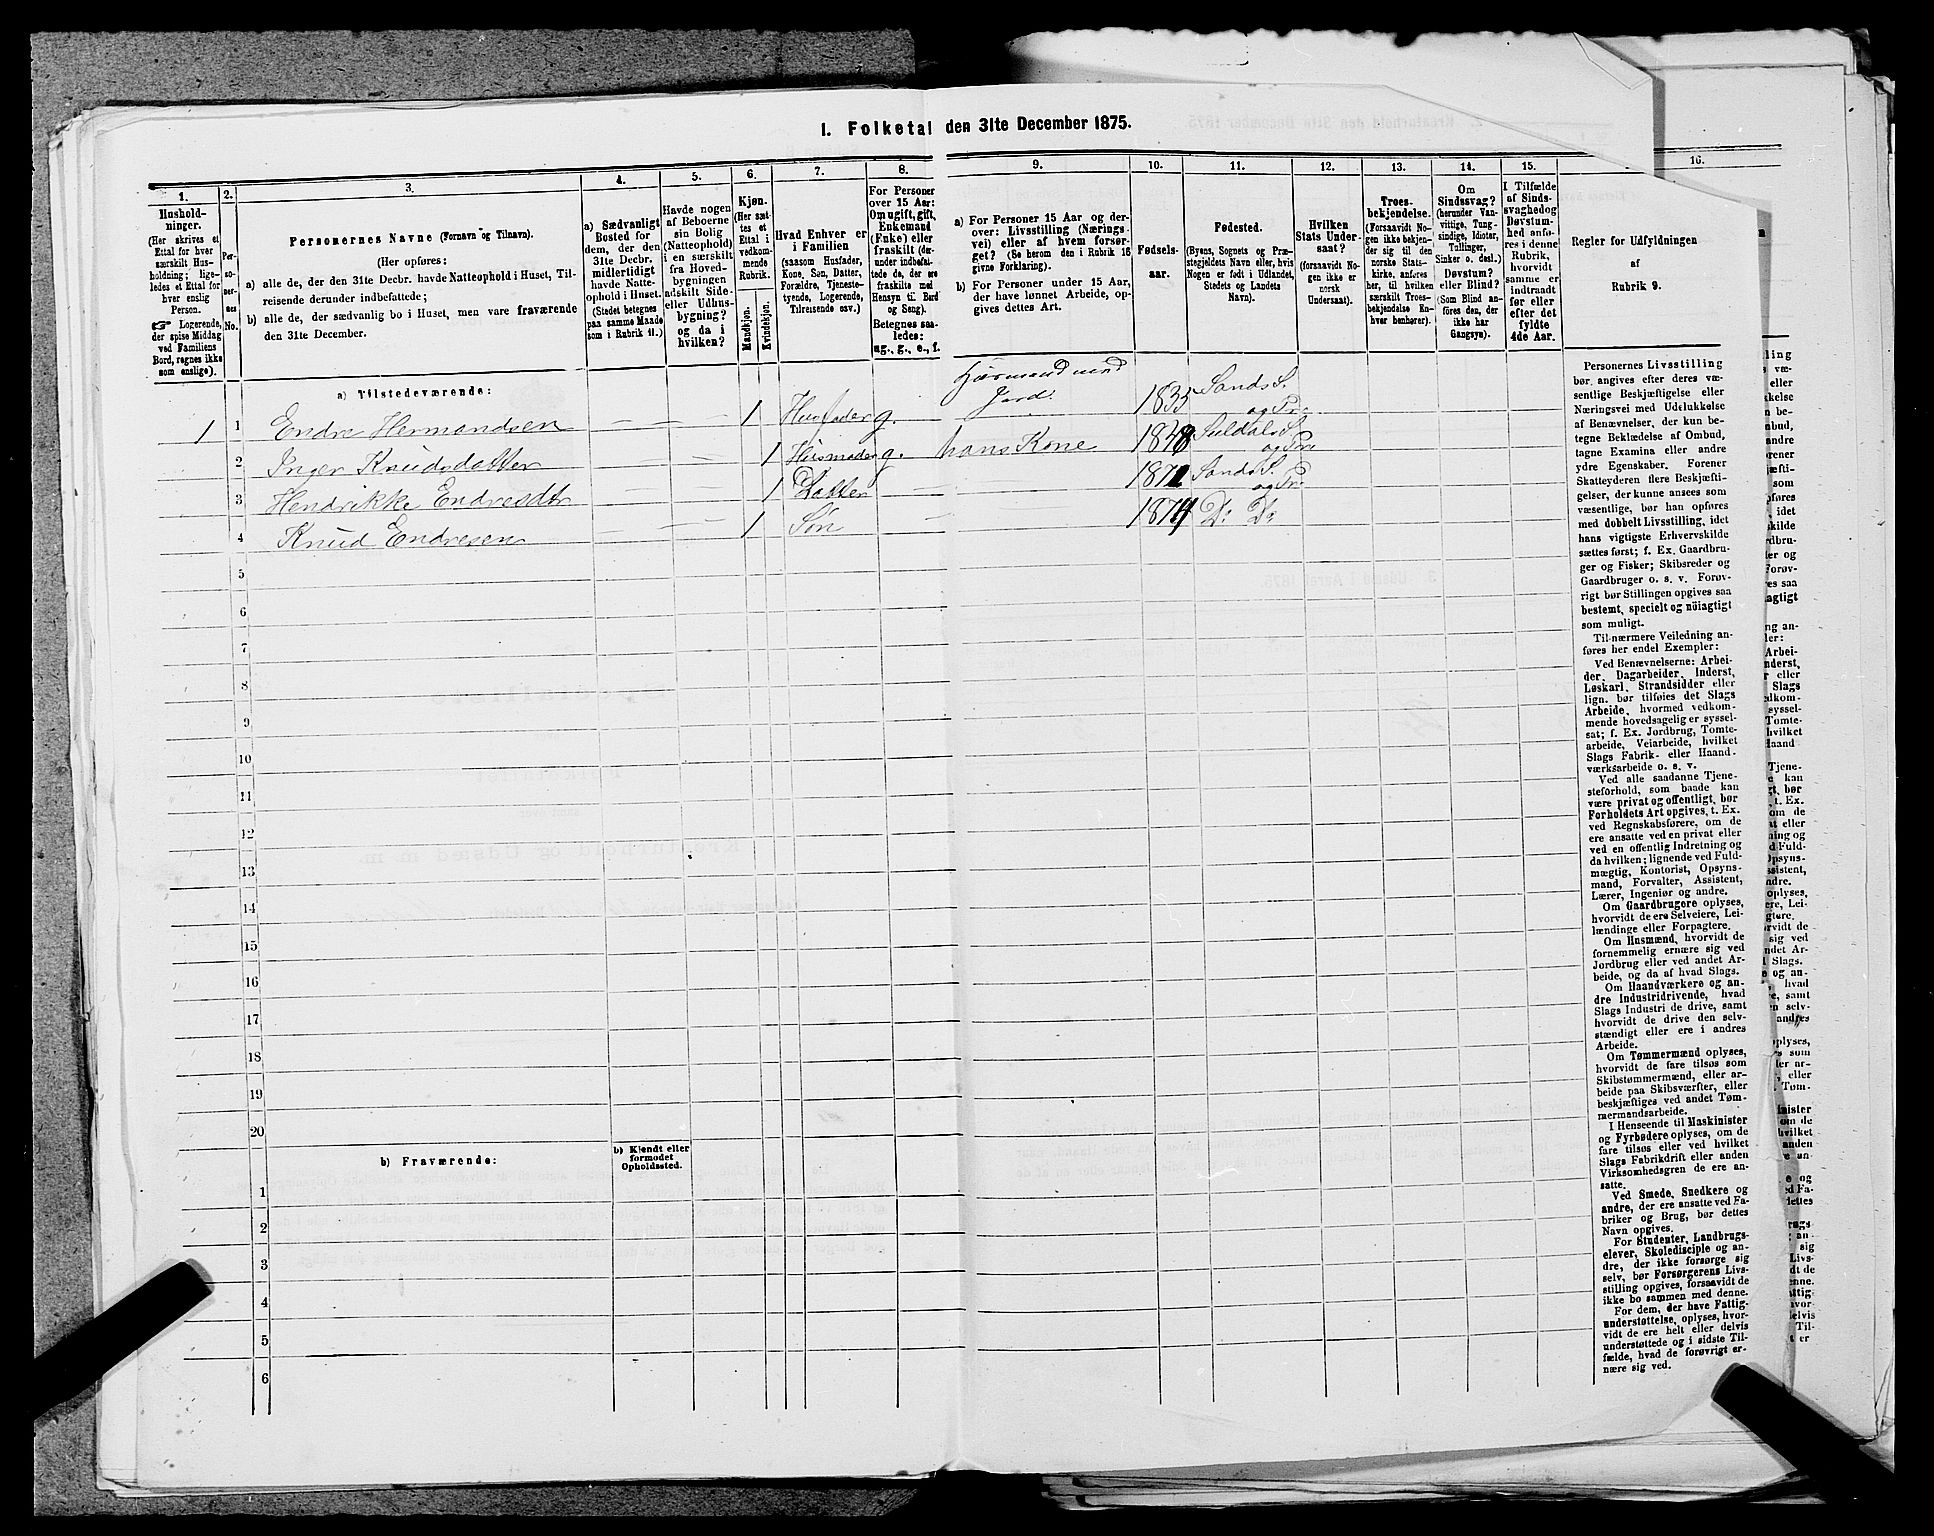 1. Folketal den 31te December 1875.
1.
2.
3.
4.
5.
6.
7.
8.
9.
10.
11.
12.
13.
14.
15.
16.
Hushold-
ninger.
(Her skrives et
Ettal for hver
særskilt Hus-
holdning; lige-
ledes et Ettal for
hver enslig
Person.
☞ Logerende,
der spise Middag
ved Familiens
Bord, regnes ikke
som enslige).
Per-
so-
ner-
nes
No.
Personernes Navne (Fornavn og Tilnavn).
(Her opføres:
a) alle de, der den 31te Decbr. havde Natteophold i Huset, Til-
reisende derunder indbefattede;
b) alle de, der sædvanlig bo i Huset, men vare fraværende
den 31te December.
a) Sædvanligt
Bosted for
dem, der den
31te Decbr.
midlertidigt
havde Natte-
ophold i Huset.
(Stedet betegnes
paa samme Maade
som i Rubrik 11.)
Havde nogen
af Beboerne
sin Bolig
(Natteophold)
i en særskilt
fra Hoved-
bygningen
adskilt Side-
eller Udhus-
bygning?
og da i
hvilken?
Kjøn.
(Her sæt-
tes et
Ettal i
vedkom-
mende
Rubrik.
Mandkjøn.
Kvindekjøn.
Hvad Enhver er
i Familien
(saasom Husfader,
Kone, Søn, Datter,
Forældre, Tjeneste-
tyende, Logerende,
Tilreisende osv.)
For Personer
over 15 Aar:
Om ugift, gift,
Enkemand
(Enke) eller
fraskilt (der-
under indbefat-
tede de, der ere
fraskilte med
Hensyn til Bord
og Seng).
Betegnes saa-
ledes:
ug., g., e., f.
a) For Personer 15 Aar og der-
over: Livsstilling (Nærings-
vei) eller af hvem forsør-
get? (Se herom den i Rubrik 16
givne Forklaring).
b) For Personer under 15 Aar,
der have lønnet Arbeide, op-
gives dettes Art.
Fødsels-
aar.
Fødested.
(Byens, Sognets og Præ-
stegjeldets Navn eller, hvis
Nogen er født i Udlandet,
Stedets og Landets
Navn).
Hvilken
Stats Under-
saat?
(forsaavidt No-
gen ikke er
norsk
Undersaat).
Troes-
bekjendelse.
(Forsaavidt No-
gen ikke bekjen-
der sig til den
norske Stats-
kirke, anføres
her, til hvilken
særskilt Troes-
bekjendelse En-
hver henhører).
Om
Sindssvag?
(herunder Van-
vittige, Tung-
sindige, Idioter,
Tullinger,
Sinker o. desl.)
Døvstum?
eller Blind?
(Som Blind an-
føres den, der
ikke har
Gangsyn).
I Tilfælde
af Sinds-
svaghed og
Døvstum-
hed anfø-
res i denne
Rubrik,
hvorvidt
samme er
indtraadt
før eller
efter det
fyldte
4de Aar.
Regler for Udfyldningen
af
Rubrik 9.
a) Tilstedeværende:
1 1 Endre Hermandsen — — 1 Husfader g. Husmand med Jord. 1835 Sands S. og Pr.
2 Inger Knudsdatter — — 1 Husmoder g. hans Kone 1848 Suldals S. og Pr.
3 Hendrikke Endresdtr — — 1 Datter 1871 Sands S. og Pr.
4 Knud Endresen — — 1 Søn 1874 Do Do
5
6
7
8
9
10
11
12
13
14
15
16
17
18
19
20
b) Fraværende:
b) Kjendt eller
formodet
Opholdssted.
1
2
3
4
5
6
Personernes Livsstilling
bør angives efter deres væ-
sentlige Beskjæftigelse eller
Næringsvei med Udelukkelse
af Benævnelser, der kun be-
tegne Beklædelse af Ombud,
tagne Examina eller andre
ydre Egenskaber. Forener
Skatteyderen flere Beskjæfti-
gelser, der kunne ansees som
væsentlige, bør han opføres
med dobbelt Livsstilling, idet
hans vigtigste Erhvervskilde
sættes først; f. Ex. Gaardbru-
ger og Fisker; Skibsreder og
Gaardbruger o. s. v. Forøv-
rigt bør Stillingen opgives saa
bestemt, specielt og nöiagtigt
som muligt.
Til nærmere Veiledning an-
føres her endel Exempler:
Ved Benævnelserne: Arbei-
der, Dagarbeider, Inderst,
Løskarl, Strandsidder eller
lign. bør tilføies det Slags
Arbeide, hvormed vedkom-
mende hovedsagelig er syssel-
sat; f. Ex. Jordbrug, Tomte-
arbeide, Veiarbeide, hvilket
Slags Fabrik- eller Haand-
værksarbeide o. s. v.
Ved alle saadanne Tjene-
steforhold, som baade kan
være privat og offentligt, bør
Forholdets Art opgives, t. Ex.
ved Regnskabsførere, om de
ere ansatte ved en privat eller
ved en offentlig Indretning og
da hvilken; lignende ved Fuld-
mægtig, Kontorist, Opsyns-
mand, Forvalter, Assistent,
Lærer, Ingeniør og andre.
Om Gaardbrugere oplyses,
hvorvidt de ere Selveiere, Lei-
lændinge eller Forpagtere.
Om Husmænd, hvorvidt de
fornemmelig ernære sig ved
Jordbrug eller ved andet Ar-
beide, og da af hvad Slags.
Om Haandværkere og an-
dre Industridrivende, hvad
Slags Industri de drive, samt
hvorvidt de drive den selv-
stændigt eller ere i andres
Arbeide.
Om Tømmermænd oplyses,
hvorvidt de fare tilsøs som
Skibstømmermænd, eller ar-
beide paa Skibsværfter, eller
beskjæftiges ved andet Tøm-
mermandsarbeide.
I Henseende til Maskinister
og Fyrbødere oplyses, om de
fare tilsøs eller ved hvilket
Slags Fabrikdrift eller anden
Virksomhedsgren de ere an-
satte.
Ved Smede, Snedkere og
andre, der ere ansatte ved Fa-
briker og Brug, bør dettes
Navn opgives.
For Studenter, Landbrugs-
elever, Skoledisciple og an-
dre, der ikke forsørge sig
selv, bør Forsørgerens Livs-
stilling opgives, forsaavidt de
ikke bo sammen med denne.
For dem, der have Fattig-
understøttelse, oplyses, hvor-
vidt de ere helt eller delvis
understøttede og i sidste Til-
fælde, hvad de forøvrigt er-
nære sig ved.